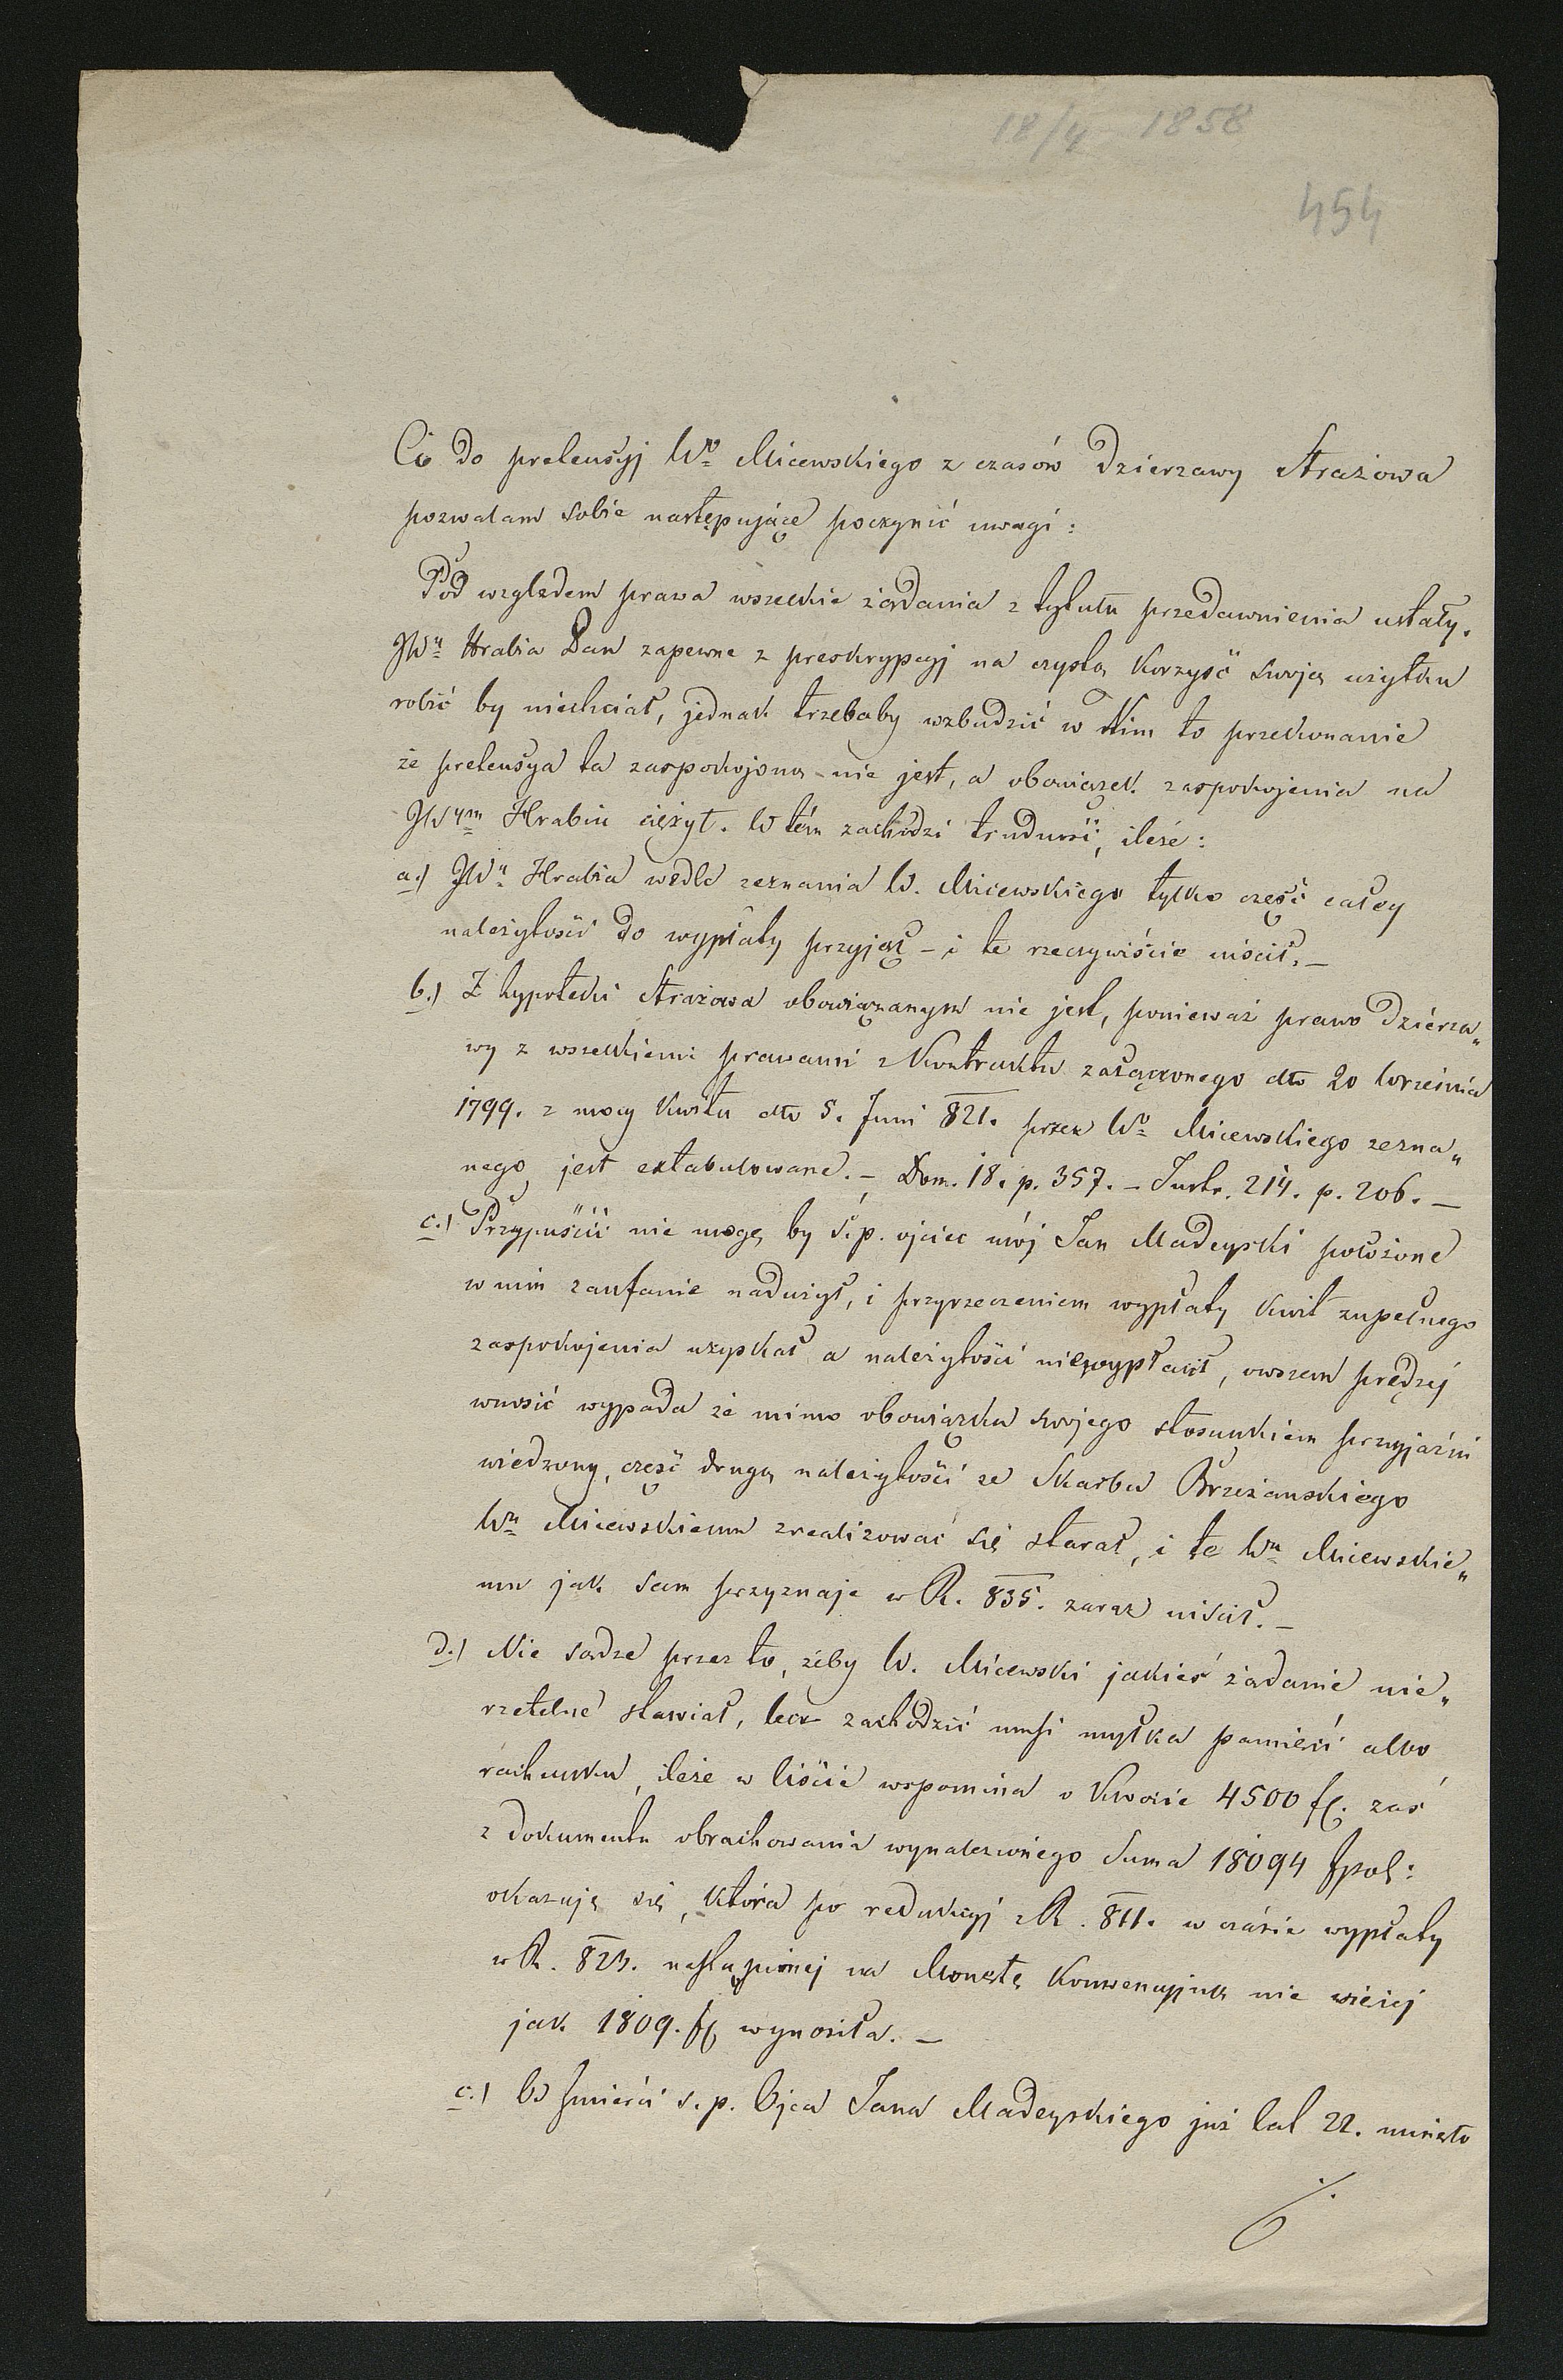 18/4 1858
454
Co do pretensyj Wo Micewskiego z czasów Dzierzawy Strażowa
pozwalam sobie następujące poczynić uwagi:
Pod wzgledem prawa wszelkie żądania z tytułu przedawnienia ustały.
JWy Hrabia Pan zapewne z preskrypcyj na czystą korzyść swoją użytku
robić by niechciał, jednak trzebaby wzbudzić w Nim to przekonanie
że pretensya ta zaspokojoną nie jest, a obowiązek zaspokojenia na
JWym Hrabiu ciężył. W tém zachodzi trudność, ileże:
a.) JWy Hrabia wedle zeznania W. Micewskiego tylko część całey
należytości do wypłaty przyjął – i te rzeczywiście uiścił. –
b.) Z hypoteki Strażowa obowiązanym nie jest, ponieważ prawo Dzierza„
wy z wszelkiemi prawami z Kontraktu załączonego dto 20 Września
1799. z mocy Kwitu dto 5. Juni 821. przez Wo Micewskiego zezna„
nego jest extabulowane. – Dom. 18. p. 357. – Instr. 214. p. 206. –
c.) Przypuścić nie mogę by ś. p. ojciec mój Jan Madeyski położone
w nim zaufanie nadużył, i przyrzeczeniem wypłaty kwit zupełnego
zaspokojenia uzyskał a należytości niewypłacił, owszem prędzej
wnosić wypada że mimo obowiązku swojego stosunkiem przyjaźni
wiedzony, część drugą należytości ze Skarbu Brzeżanskiego
Wu Micewskiemu zrealizować się starał, i te Wu Micewskie„
mu jak sam przyznaje w R. 835. zaraz uiścił. –
d.) Nie sądze przez to, żeby W. Micewski jakieś żądanie nie„
rzetelne stawiał, lecz zachodzić musi myłka pamięci albo
rachunku, ileże w liście wspomina o Kwocie 4500 fl. zaś
z Dokumentu obrachowania wynalezionego Suma 18094 fpol:
okazuję się, która po redukcyj z R. 811. w czasie wypłaty
w R. 823. nastąpionej na Monetę Konwencyjną nie więcej
jak 1809. fl wynosiła. –
e.) Od śmierci ś. p. Ojca Jana Madeyskiego już lat 22. minęło
./.